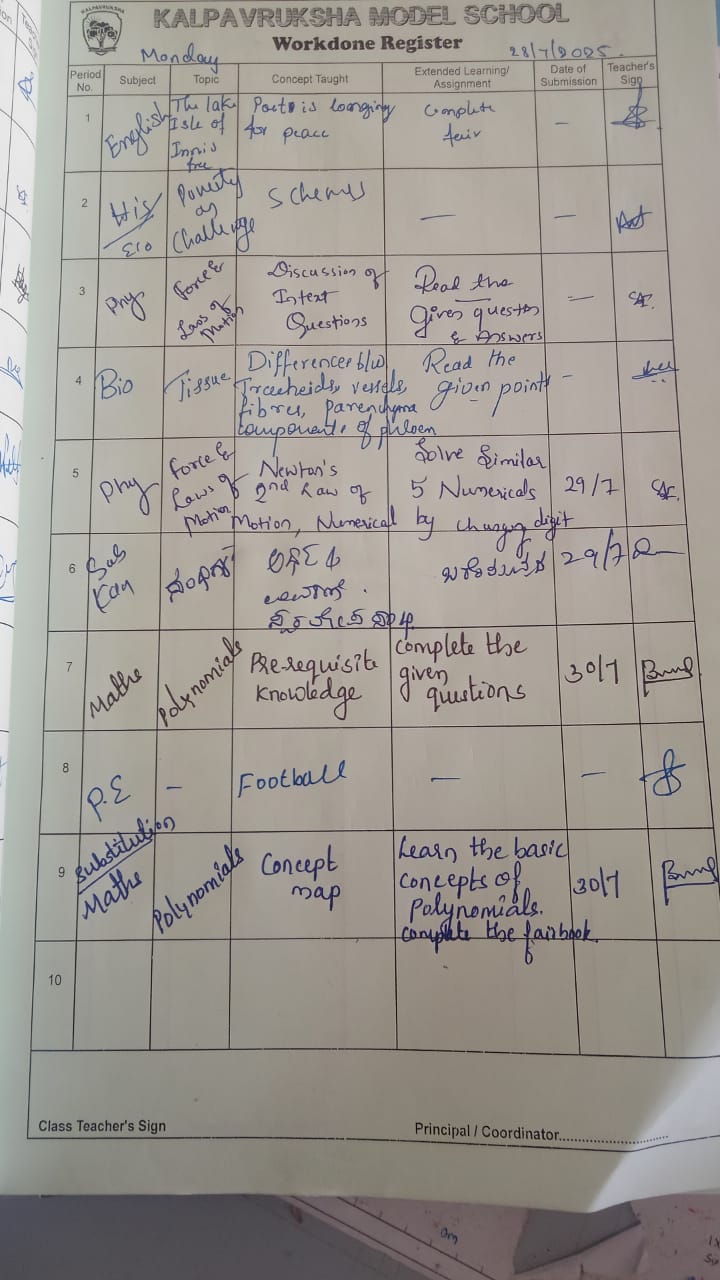 KALPAVRUKSHA
KALPAVRUKSHA MODEL SCHOOL
Workdone Register
Monday 28/7/2025
Period No. Subject Topic Concept Taught Extended Learning/ Assignment Date of Submission Teacher's Sign
1 English The lake Isle of Innis free Poets is longing for peace Complete fair –
2 His/Eco Poverty as Challenge Schemes – –
3 Phy Force & Laws of Motion Discussion of Intext Questions Read the Given questn & Answers –
4 Bio Tissue Difference b/w Tracheids, vessels, fibres, parenchyma components of phloem Read the given points –
5 Phy Force & Laws of Motion Newton's 2nd Law of Motion, Numerical Solve Similar 5 Numericals by changing digit 29/7
6 Sub Kan 29/7
7 Maths Polynomials Pre-requisite knowledge complete the given questions 30/7
8 P.E – Football – –
9 Substitution Maths Polynomials Concept map Learn the basic concepts of Polynomials. complete the fairbook. 30/7
10
Class Teacher's Sign Principal / Coordinator